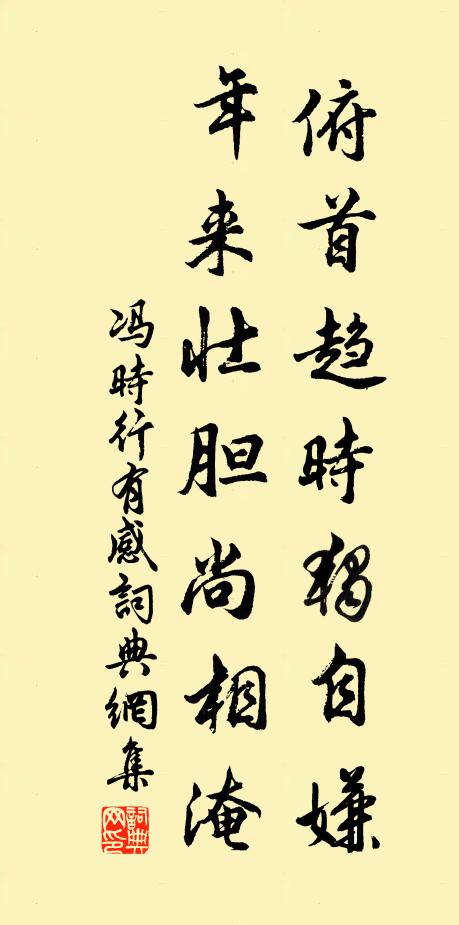 俯首趋時独自嫌
年来壮胆尚相淹
冯時行有感詞典網集
詞典网印